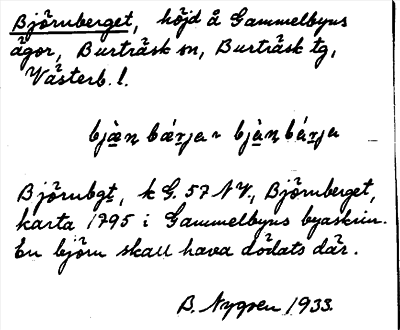 Björnberget, höjd å Gammelbyns
ägor, Burträsk sn, Burträsk tg,
Västerb. l.
bjæ̀ṇ bǽrja ~ bjàṇbárja
Björnbgt, k G. 57 NV., Björnberget,
karta 1795 i Gammelbyns byaskrin.
En björn skall hava dödats där.
B. Nygren 1933.